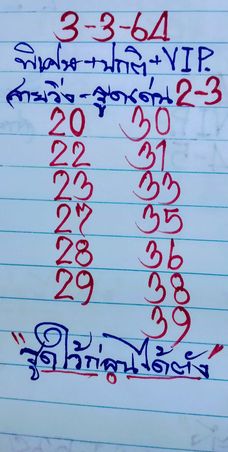 3-3-64
พิเศษ+ปกติ+VIP.
สายวิ่ง-รูดเด่น 2-3
20 30
22 31
23 33
27 35
28 36
29 38
39
"รูดไว้ก่อนได้ตัง"